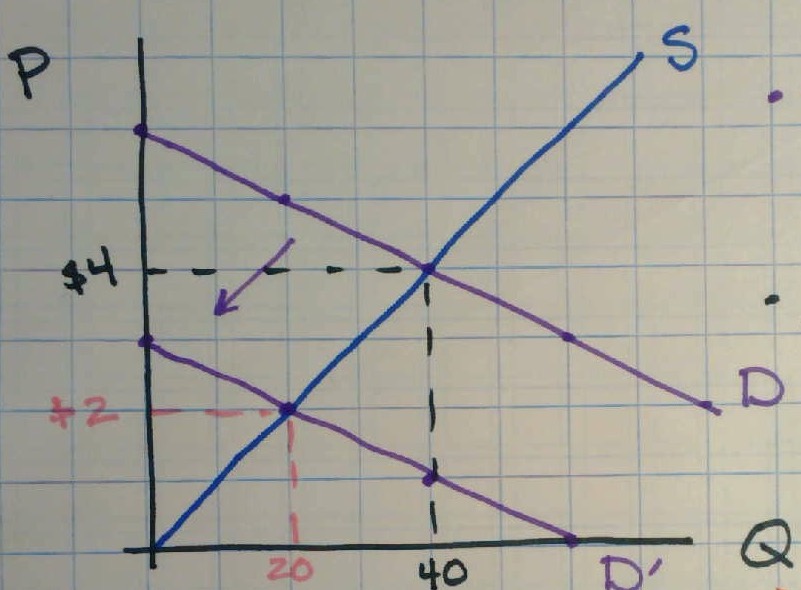 P
S
$4
D
$2
20
40
D'
Q